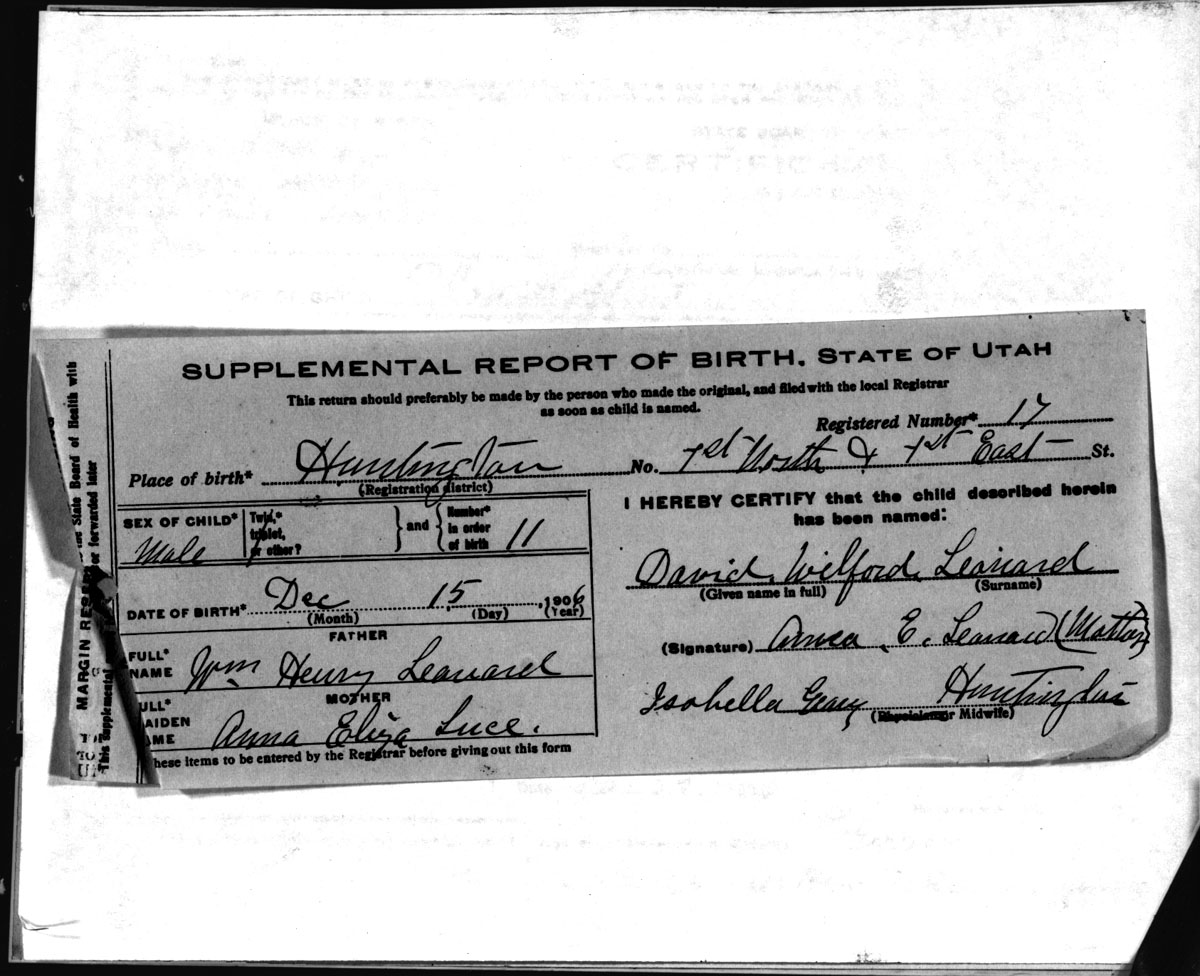 SUPPLEMENTAL REPORT OF BIRTH. STATE OF UTAH
This return should preferably be made by the person who made the original, and filed with the local Registrar
as soon as child is named.
Registered Number* 17
Place of birth* Huntington No. 1st North & 1st East St.
(Registration district)
SEX OF CHILD* Male
Twin,* triplet, or other?
and
Number* in order of birth 11
DATE OF BIRTH* Dec 15, 1906
(Month) (Day) (Year)
FATHER
FULL* NAME Wm Henry Leonard
MOTHER
Anna Eliza Luce.
these items to be entered by the Registrar before giving out this form
I HEREBY CERTIFY that the child described herein
has been named:
David Wilford Leonard
(Given name in full) (Surname)
(Signature) Anna E. Leonard (Mother)
Isobella Geary Huntington
(Physician or Midwife)
MARGIN
State Board of Health with
or forwarded later
This supplemental